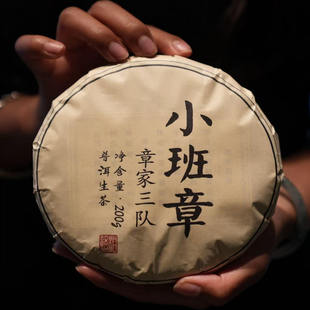 小班章
章家三队
净含量·200g
普洱生茶